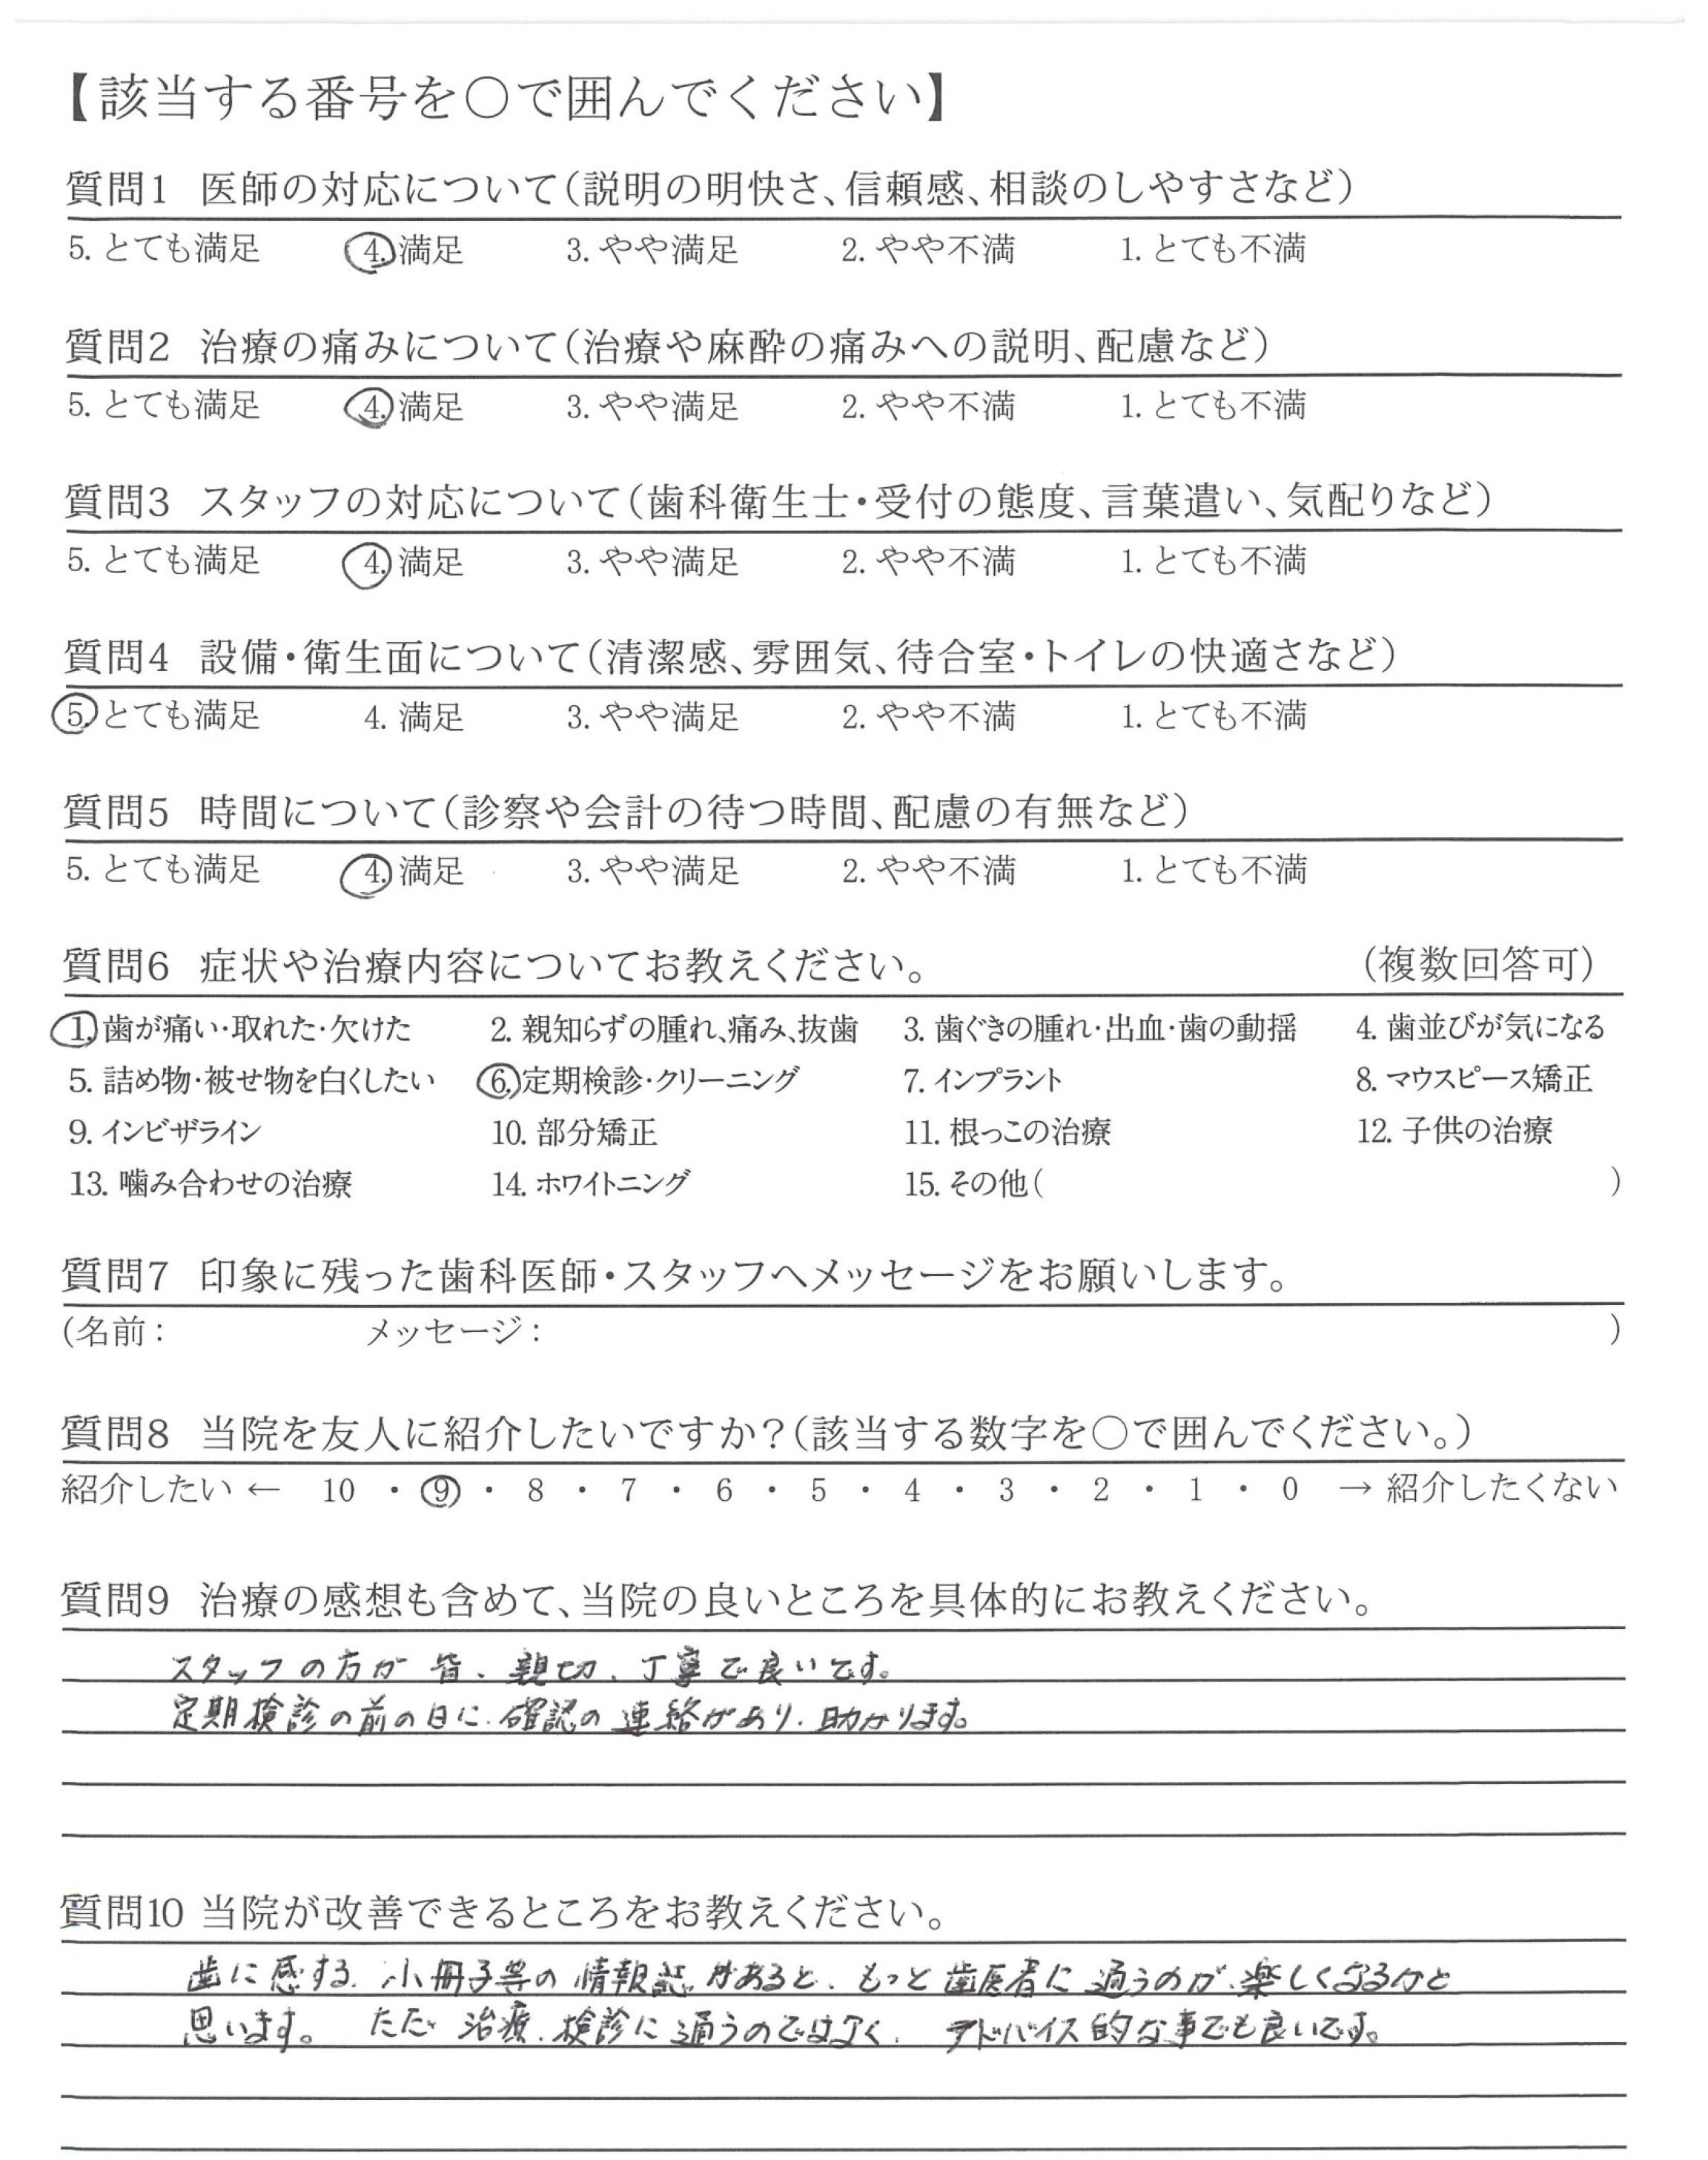 【該当する番号を〇で囲んでください】
質問1 医師の対応について(説明の明快さ、信頼感、相談のしやすさなど)
5. とても満足 4. 満足 3. やや満足 2. やや不満 1. とても不満
質問2 治療の痛みについて(治療や麻酔の痛みへの説明、配慮など)
5. とても満足 4. 満足 3. やや満足 2. やや不満 1. とても不満
質問3 スタッフの対応について(歯科衛生士・受付の態度、言葉遣い、気配りなど)
5. とても満足 4. 満足 3. やや満足 2. やや不満 1. とても不満
質問4 設備・衛生面について(清潔感、雰囲気、待合室・トイレの快適さなど)
5. とても満足 4. 満足 3. やや満足 2. やや不満 1. とても不満
質問5 時間について(診察や会計の待つ時間、配慮の有無など)
5. とても満足 4. 満足 3. やや満足 2. やや不満 1. とても不満
質問6 症状や治療内容についてお教えください。 (複数回答可)
1. 歯が痛い・取れた・欠けた 2. 親知らずの腫れ、痛み、抜歯 3. 歯ぐきの腫れ・出血・歯の動揺 4. 歯並びが気になる
5. 詰め物・被せ物を白くしたい 6. 定期検診・クリーニング 7. インプラント 8. マウスピース矯正
9. インビザライン 10. 部分矯正 11. 根っこの治療 12. 子供の治療
13. 噛み合わせの治療 14. ホワイトニング 15. その他( )
質問7 印象に残った歯科医師・スタッフへメッセージをお願いします。
(名前: メッセージ: )
質問8 当院を友人に紹介したいですか?(該当する数字を〇で囲んでください。)
紹介したい ← 10 ・ 9 ・ 8 ・ 7 ・ 6 ・ 5 ・ 4 ・ 3 ・ 2 ・ 1 ・ 0 → 紹介したくない
質問9 治療の感想も含めて、当院の良いところを具体的にお教えください。
スタッフの方が皆、親切、丁寧で良いです。
定期検診の前の日に、確認の連絡があり、助かります。
質問10 当院が改善できるところをお教えください。
歯に感する、小冊子等の情報誌があると、もっと歯医者に通うのが、楽しくなるかと
思います。 ただ治療、検診に通うのではなく、アドバイス的な事でも良いです。